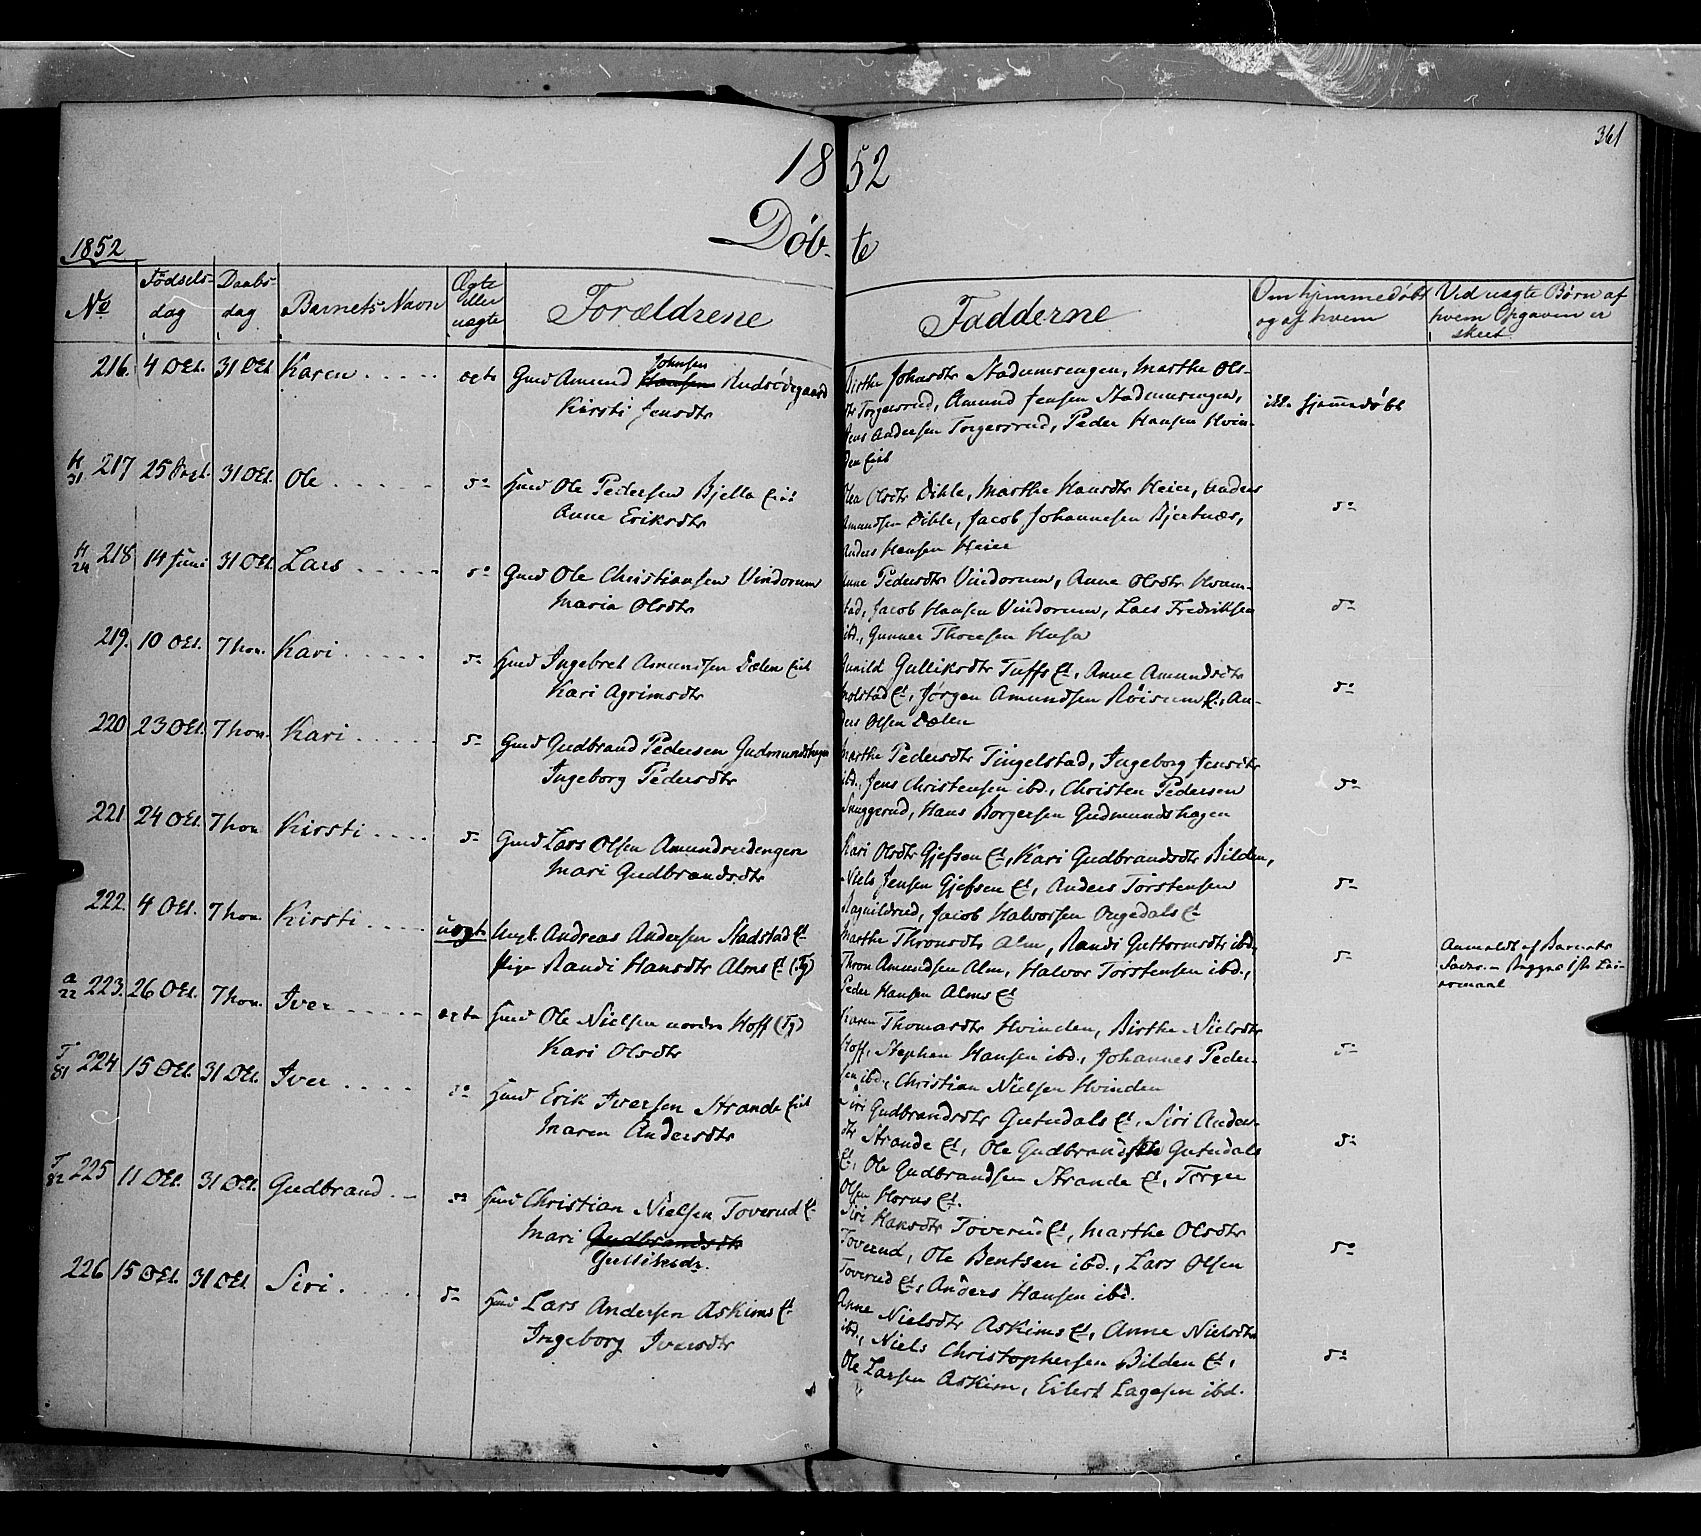 361
1852
Døbte
1852
No
Fødsels-
dag
Daabs-
dag
Barnets Navn
Ægte
eller
uægte
Forældrene
Fadderne
Om hjemmedøbt
og af hvem
Ved uægte Børn af
hvem Opgaven er
skeet
216. 4 Oct. 31 Oct Karen ægte Gmd Amund Hansen Johnsen Rudsødegaard
Kirsti Jensdtr
Birthe Johnsdtr Stadumsengen, Marthe Ols-
dtr Torgersrud, Amund Jensen Stadumsengen,
Jens Andersen Torgersrud, Peder Hansen Hvin-
den Eiet
ikke hjemmedøbt
H 31 217 25 Sept. 31 Oct. Ole do Hmd Ole Pedersen Bjella Eiet
Anne Eriksdtr
Olea Olsdtr Dihle, Marthe Hansdtr Heier, Anders
Amundsen Dihle, Jacob Johannesen Bjertnæs,
Anders Hansen Heier
do
H 24 218 14 Juni 31 Oct. Lars do Gmd Ole Christiansen Vindorum
Maria Olsdtr
Anne Pedersdtr Vindorum, Anne Olsdtr Hvam-
stad, Jacob Hansen Vindorum, Lars Fredriksen
ibd., Gunner Thoresen Husa
do
219. 10 Oct. 7 Nov. Kari do Hmd Ingebret Amundsen Dælen Eiet
Kari Agrimsdtr
Gunild Gulliksdtr Tuffs Et, Anne Amundsdtr
Molstad Et, Jørgen Amundsen Røisum Et, An-
ders Olsen Dælen
do
220 23 Oct. 7 Nov. Kari do Gmd Gudbrand Pedersen Gudmundshagen
Ingeborg Pedersdtr
Marthe Pedersdtr Tingelstad, Ingeborg Jensdtr
ibd., Jens Christensen ibd., Christen Pedersen
Snuggerud, Hans Borgersen Gudmundshagen
do
221 24 Oct. 7 Nov Kirsti do Gmd Lars Olsen Amundrudengen
Mari Gudbrandsdtr
Kari Olsdtr Gjefsen Et, Kari Gudbrandsdtr Bilden,
Niels Jensen Gjefsen Et, Anders Torstensen
Ragnildrud, Jacob Halvorsen Ongedals Et
do
222. 4 Oct. 7 Nov. Kirsti uægte Ungk. Andreas Andersen Stadstad Et
Pige Randi Hansdtr Alms Et (Tg)
Marthe Thronsdtr Alm, Randi Guttormsdtr ibd,
Thron Amundsen Alm, Halvor Torstensen ibd.,
Peder Hansen Alms Et
do
Anmeldt af Barnets
Fader. – Begges 1ste Lei-
ermaal
a 22 223. 26 Oct. 7 Nov. Iver ægte Hmd Ole Nielsen nordre Hoff (Tg)
Kari Olsdtr
Karen Thomasdtr Hvinden, Birthe Nielsdtr
Hoff, Stephen Hansen ibd., Johannes Peder-
sen ibd., Christian Nielsen Hvinden
do
T 81 224 15 Oct. 31 Oct. Iver do Hmd Erik Iversen Strande Eiet
Maren Andersdtr
Siri Gudbrandsdtr Gutudals Et, Siri Anders-
dtr Strande Et, Ole Gudbrandsen Gutudals
Et, Ole Gudbrandsen Strande Et, Torger
Olsen Horns Et.
do
T 82 225 11 Oct. 31 Oct. Gudbrand do Hmd Christian Nielsen Toverud Et
Mari Gudbrandsdtr
Gulliksdr.
Siri Hansdtr Toverud Et, Marthe Olsdtr
Toverud, Ole Bentsen ibd., Lars Olsen
Toverud Et, Anders Hansen ibd.
do
226 15 Oct. 31 Oct Siri. do Hmd Lars Andersen Askims Et
Ingeborg Iversdtr
Anne Nielsdtr Askims Et, Anne Nielsdtr
ibd., Niels Christophersen Bilden Et,
Ole Larsen Askim, Eilert Lagesen ibd.
do